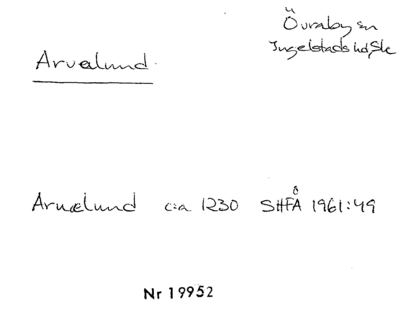 Övraby sn
Ingelstads hd, Sk
Arvalund
Arvalund c:a 1230 SHFÅ 1961:49
Nr 19952